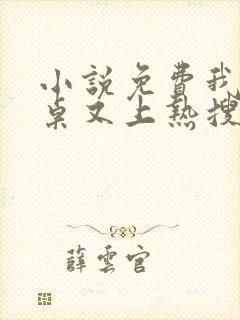 小說免費我
桌又上熱搜
薛雲官